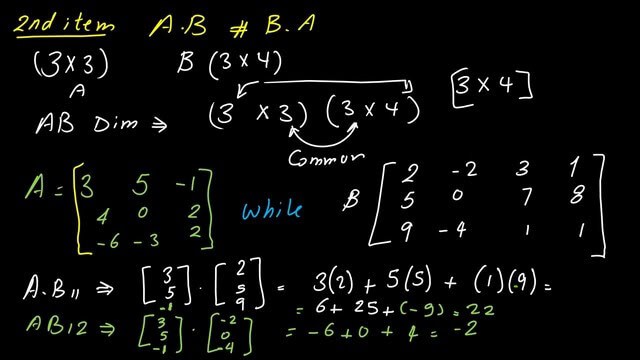 2nd item A.B ≠ B.A
(3×3) B (3×4)
A
AB Dim ⇒ (3 ×3) (3×4) [3×4]
Common
A = [3 5 -1 while B [2 -2 3 1
4 0 2 5 0 7 8
-6 -3 2] 9 -4 1 1]
A.B11 ⇒ [3 5 -1] . [2 5 9] = 3(2) + 5(5) + (1)(-9) =
= 6 + 25 + (-9) = 22
AB12 ⇒ [3 5 -1] . [-2 0 -4] = -6 + 0 + 4 = -2